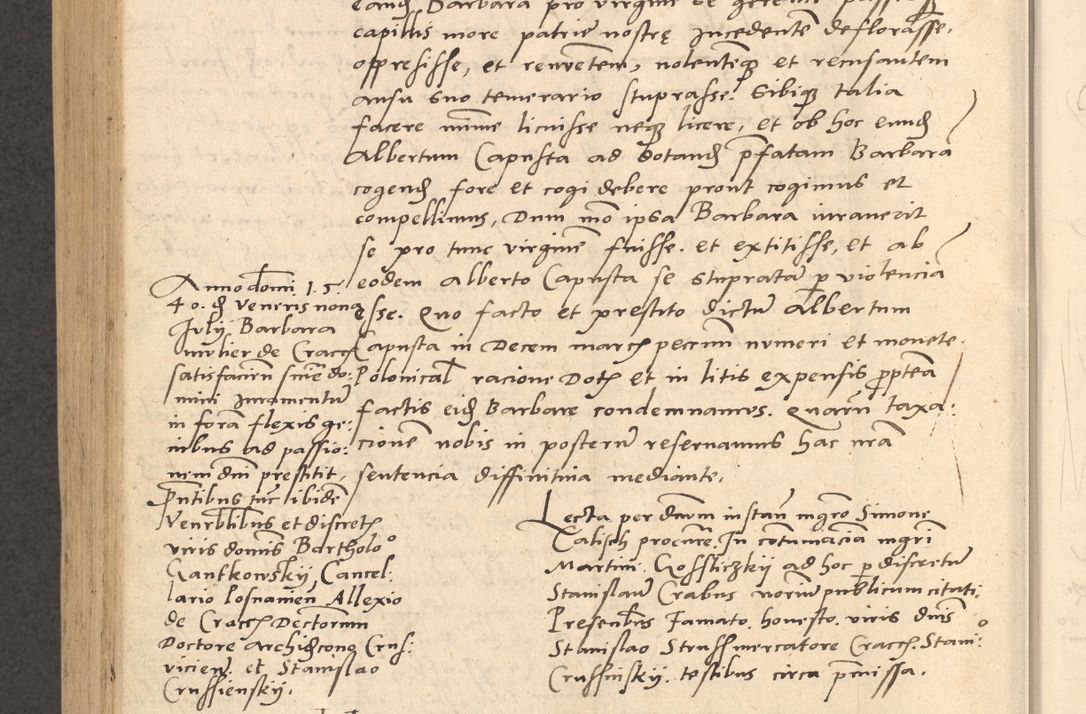 eandem Barbara pro virgine se gerente
capillis more patrie nostrę Incedentē deflorasse.
oppresisse, et renuētem, nolentemq̄ et recusantem
ausu suo temerario stuprasse. Sibiq̄ talia
facere mīme licuisse neq̄ licere, et ob hoc eund
Albertum Capusta ad dotand p̄fatam Barbarā
cogend fore et cogi debere prout cogimus et
compellimus, Dum mō ipsa Barbara iurauerit
se pro tunc virginē fuisse. et extitisse, et ab
eodem Alberto Capusta se stupratā p violenciā
esse. Quo facto et prestito dictū Albertum
Capusta in Decem marcę peccun̄ numeri et monete
Polonical̄ racione Dotę et in litis expensis p̄pteā
factis eid Barbare condemnamus. Quarū taxa:
cionē nobis in posterū reseruamus hac nrā
sentencia diffinitiua mediante.
Anno dom̄i 15
40. d Veneris nona
Julij Barbara
mulier de Cracę
satisfaciēn sn̄ie do:
mini Juramentū
in formā flexis ge:
nibus ad passio:
nem dn̄i prestitit,
Pn̄tibus tūc ibidē
Venerl̄ibus et discretę
viris dominis Bartholo
Gantkowskij Cancel:
lario Posnanień Allexio
de Cracę Doctorum
Doctore Archidcono Crus:
vicień et Stanislao
Crussienskij.
Lecta per dn̄um in stan̄ mgr̄o Simone
Calisch procurē. In cōtumaciā mgr̄i
Martini Gosslicȝkij ad hoc p discretū
Stanislaū Crabus noriū publicum citati
Presentib̄s Famato. honesto. viris dn̄is
Stanislao Struss mercatore Cracę. Stani:
Crussinskij. testibus circa p̄missa.